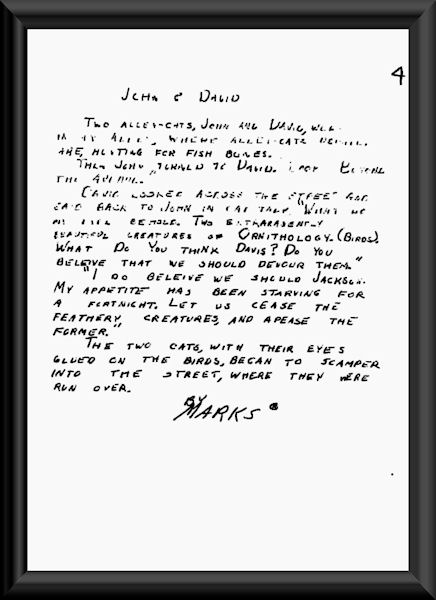 4
JOHN & DAVID
TWO ALLEY-CATS, JOHN AND DAVID, WERE
IN AN ALLEY, WHERE ALLEY-CATS
ARE, HUNTING FOR FISH BONES.
THEN JOHN TURNED TO DAVID. LOOK BEYOND
THE AVENUE.
DAVID LOOKED ACROSS THE STREET AND
SAID BACK TO JOHN IN CAT TALK, "WHAT DO
MY EYES BEHOLD. TWO
BEAUTIFUL CREATURES OF ORNITHOLOGY. (BIRDS).
WHAT DO YOU THINK DAVIS? DO YOU
BELEIVE THAT WE SHOULD DEVOUR THEM."
"I DO BELEIVE WE SHOULD JACKSON.
MY APPETITE HAS BEEN STARVING FOR
A FORTNIGHT. LET US CEASE THE
FEATHERY CREATURES, AND APEASE THE
FORMER."
THE TWO CATS, WITH THEIR EYES
GLUED ON THE BIRDS, BEGAN TO SCAMPER
INTO THE STREET, WHERE THEY WERE
RUN OVER.
BY
MARKS